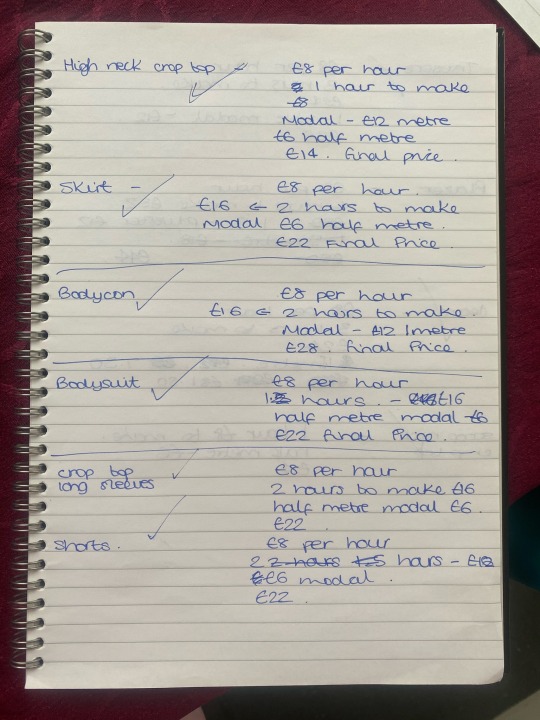 High neck crop top - £8 per hour
1 hour to make
£8
Modal - £12 metre
£6 half metre
£14. final price.
Skirt - £8 per hour.
£16 ← 2 hours to make
Modal £6 half metre.
£22 Final Price.
Bodycon £8 per hour
£16 ← 2 hours to make.
Modal - £12 1metre
£28. final Price.
Bodysuit £8 per hour
hours. - £16
half metre / modal £6
£22 final Price.
crop top £8 per hour
long sleeves 2 hours to make £16
half metre modal £6.
£22.
Shorts. £8 per hour
2 2 hours 1.5 hours - £12
£6 modal.
£22.